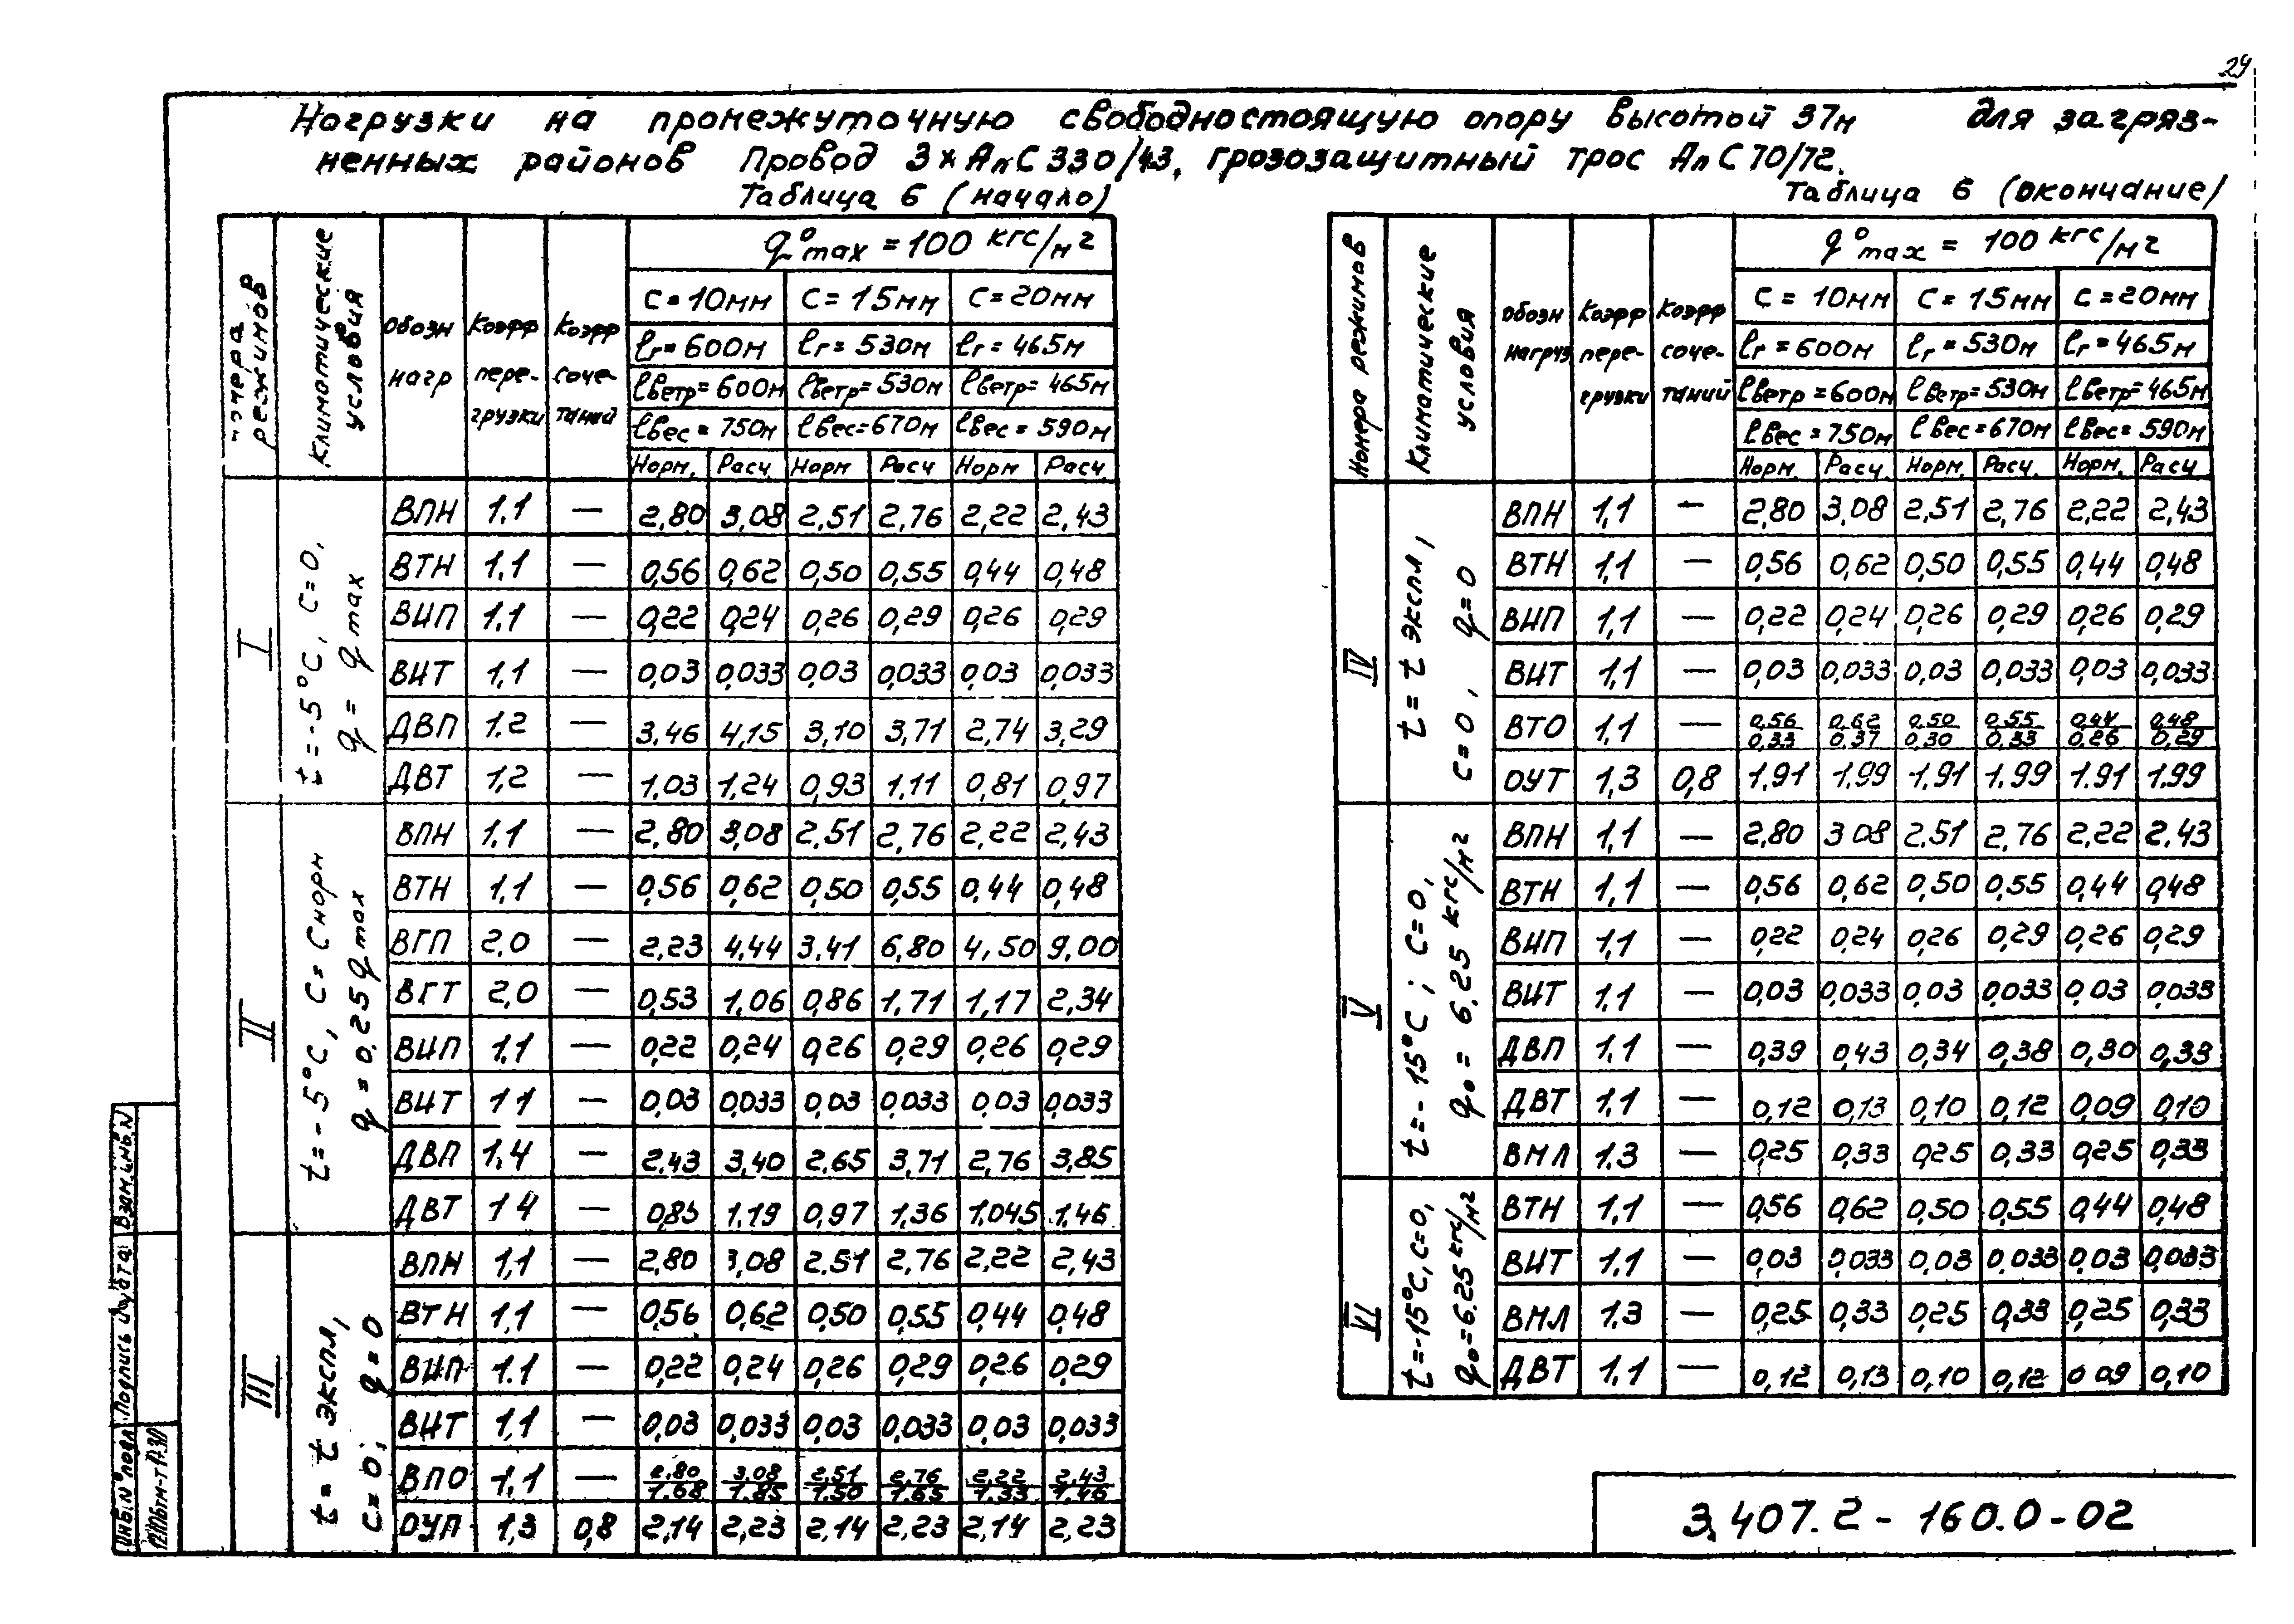 29
Нагрузки на промежуточную свободностоящую опору высотой 37м для загряз-
ненных районов Провод 3×АпС330/43, грозозащитный трос АпС70/72.
Таблица 6 (начало)
Номера режимов | Климатические условия | Обозн нагр | Коэфф пере- грузки | Коэфф соче- таний | q⁰max = 100 кгс/м²
С=10мм | С=15мм | С=20мм
ℓг=600м | ℓг=530м | ℓг=465м
ℓветр=600м | ℓветр=530м | ℓветр=465м
ℓвес=750м | ℓвес=670м | ℓвес=590м
Норм. | Расч. | Норм | Расч | Норм | Расч.
I | t=-5°С, С=0, q = q max
ВПН | 1.1 | — | 2,80 | 3,08 | 2,51 | 2,76 | 2,22 | 2,43
ВТН | 1.1 | — | 0,56 | 0,62 | 0,50 | 0,55 | 0,44 | 0,48
ВИП | 1.1 | — | 0,22 | 0,24 | 0,26 | 0,29 | 0,26 | 0,29
ВИТ | 1.1 | — | 0,03 | 0,033 | 0,03 | 0,033 | 0,03 | 0,033
ДВП | 1.2 | — | 3.46 | 4,15 | 3,10 | 3,71 | 2,74 | 3,29
ДВТ | 1,2 | — | 1.03 | 1.24 | 0,93 | 1.11 | 0,81 | 0,97
II | t=-5°С, С=Снорм q=0,25 q max
ВПН | 1.1 | — | 2,80 | 3,08 | 2.51 | 2,76 | 2,22 | 2,43
ВТН | 1.1 | — | 0,56 | 0,62 | 0,50 | 0,55 | 0,44 | 0,48
ВГП | 2.0 | — | 2,23 | 4,44 | 3,41 | 6,80 | 4,50 | 9,00
ВГТ | 2,0 | — | 0,53 | 1,06 | 0,86 | 1,71 | 1,17 | 2,34
ВИП | 1.1 | — | 0,22 | 0,24 | 0,26 | 0,29 | 0,26 | 0,29
ВИТ | 1 1 | — | 0,03 | 0,033 | 0,03 | 0,033 | 0,03 | 0,033
ДВП | 1.4 | — | 2.43 | 3,40 | 2.65 | 3,71 | 2,76 | 3,85
ДВТ | 1 4 | — | 0,85 | 1.19 | 0,97 | 1,36 | 1,045 | 1.46
III | t= t экспл, С=0; q=0
ВПН | 1,1 | — | 2,80 | 3,08 | 2.51 | 2,76 | 2,22 | 2,43
ВТН | 1,1 | — | 0,56 | 0,62 | 0,50 | 0,55 | 0,44 | 0,48
ВИП | 1.1 | — | 0,22 | 0,24 | 0,26 | 0,29 | 0,26 | 0,29
ВИТ | 1,1 | — | 0,03 | 0,033 | 0,03 | 0,033 | 0,03 | 0,033
ВПО | 1,1 | — | 2,80/1.68 | 3,08/1.85 | 2,51/1.50 | 2,76/1.65 | 2,22/1.33 | 2,43/1.46
ОУП | 1,3 | 0,8 | 2,14 | 2,23 | 2,14 | 2,23 | 2,14 | 2,23
Таблица 6 (окончание)
Номера режимов | Климатические условия | Обозн нагруз | Коэфф пере- грузки | Коэфф соче- таний | q⁰max = 100 кгс/м²
С=10мм | С=15мм | С=20мм
ℓг=600м | ℓг=530м | ℓг=465м
ℓветр=600м | ℓветр=530м | ℓветр=465м
ℓвес=750м | ℓвес=670м | ℓвес=590м
Норм. | Расч. | Норм. | Расч. | Норм. | Расч
IV | t= t экспл, С=0, q=0
ВПН | 1,1 | — | 2,80 | 3,08 | 2,51 | 2,76 | 2,22 | 2,43
ВТН | 1,1 | — | 0,56 | 0,62 | 0,50 | 0,55 | 0,44 | 0,48
ВИП | 1,1 | — | 0,22 | 0,24 | 0,26 | 0,29 | 0,26 | 0,29
ВИТ | 1,1 | — | 0,03 | 0,033 | 0,03 | 0,033 | 0,03 | 0,033
ВТО | 1,1 | — | 0,56/0,33 | 0,62/0,37 | 0,50/0,30 | 0,55/0,33 | 0,44/0,26 | 0,48/0,29
ОУТ | 1,3 | 0,8 | 1.91 | 1.99 | 1.91 | 1.99 | 1.91 | 1.99
V | t=-15°С; С=0, q₀= 6,25 кгс/м²
ВПН | 1,1 | — | 2,80 | 3 08 | 2.51 | 2,76 | 2,22 | 2.43
ВТН | 1,1 | — | 0,56 | 0,62 | 0,50 | 0,55 | 0,44 | 0,48
ВИП | 1,1 | — | 0,22 | 0,24 | 0,26 | 0,29 | 0,26 | 0,29
ВИТ | 1.1 | — | 0,03 | 0,033 | 0,03 | 0,033 | 0,03 | 0,033
ДВП | 1.1 | — | 0,39 | 0,43 | 0,34 | 0,38 | 0,30 | 0,33
ДВТ | 1.1 | — | 0,12 | 0,13 | 0,10 | 0,12 | 0,09 | 0,10
ВМЛ | 1.3 | — | 0,25 | 0,33 | 0,25 | 0,33 | 0,25 | 0,33
VI | t=-15°С, С=0, q₀=6.25 кгс/м²
ВТН | 1.1 | — | 0,56 | 0,62 | 0,50 | 0,55 | 0,44 | 0,48
ВИТ | 1.1 | — | 0,03 | 0,033 | 0,03 | 0,033 | 0,03 | 0,033
ВМЛ | 1.3 | — | 0,25 | 0,33 | 0,25 | 0,33 | 0,25 | 0,33
ДВТ | 1.1 | — | 0,12 | 0,13 | 0,10 | 0,12 | 0 09 | 0,10
3.407.2-160.0-02
Взам.инв.N
Подпись и дата
Инв.N°подл.